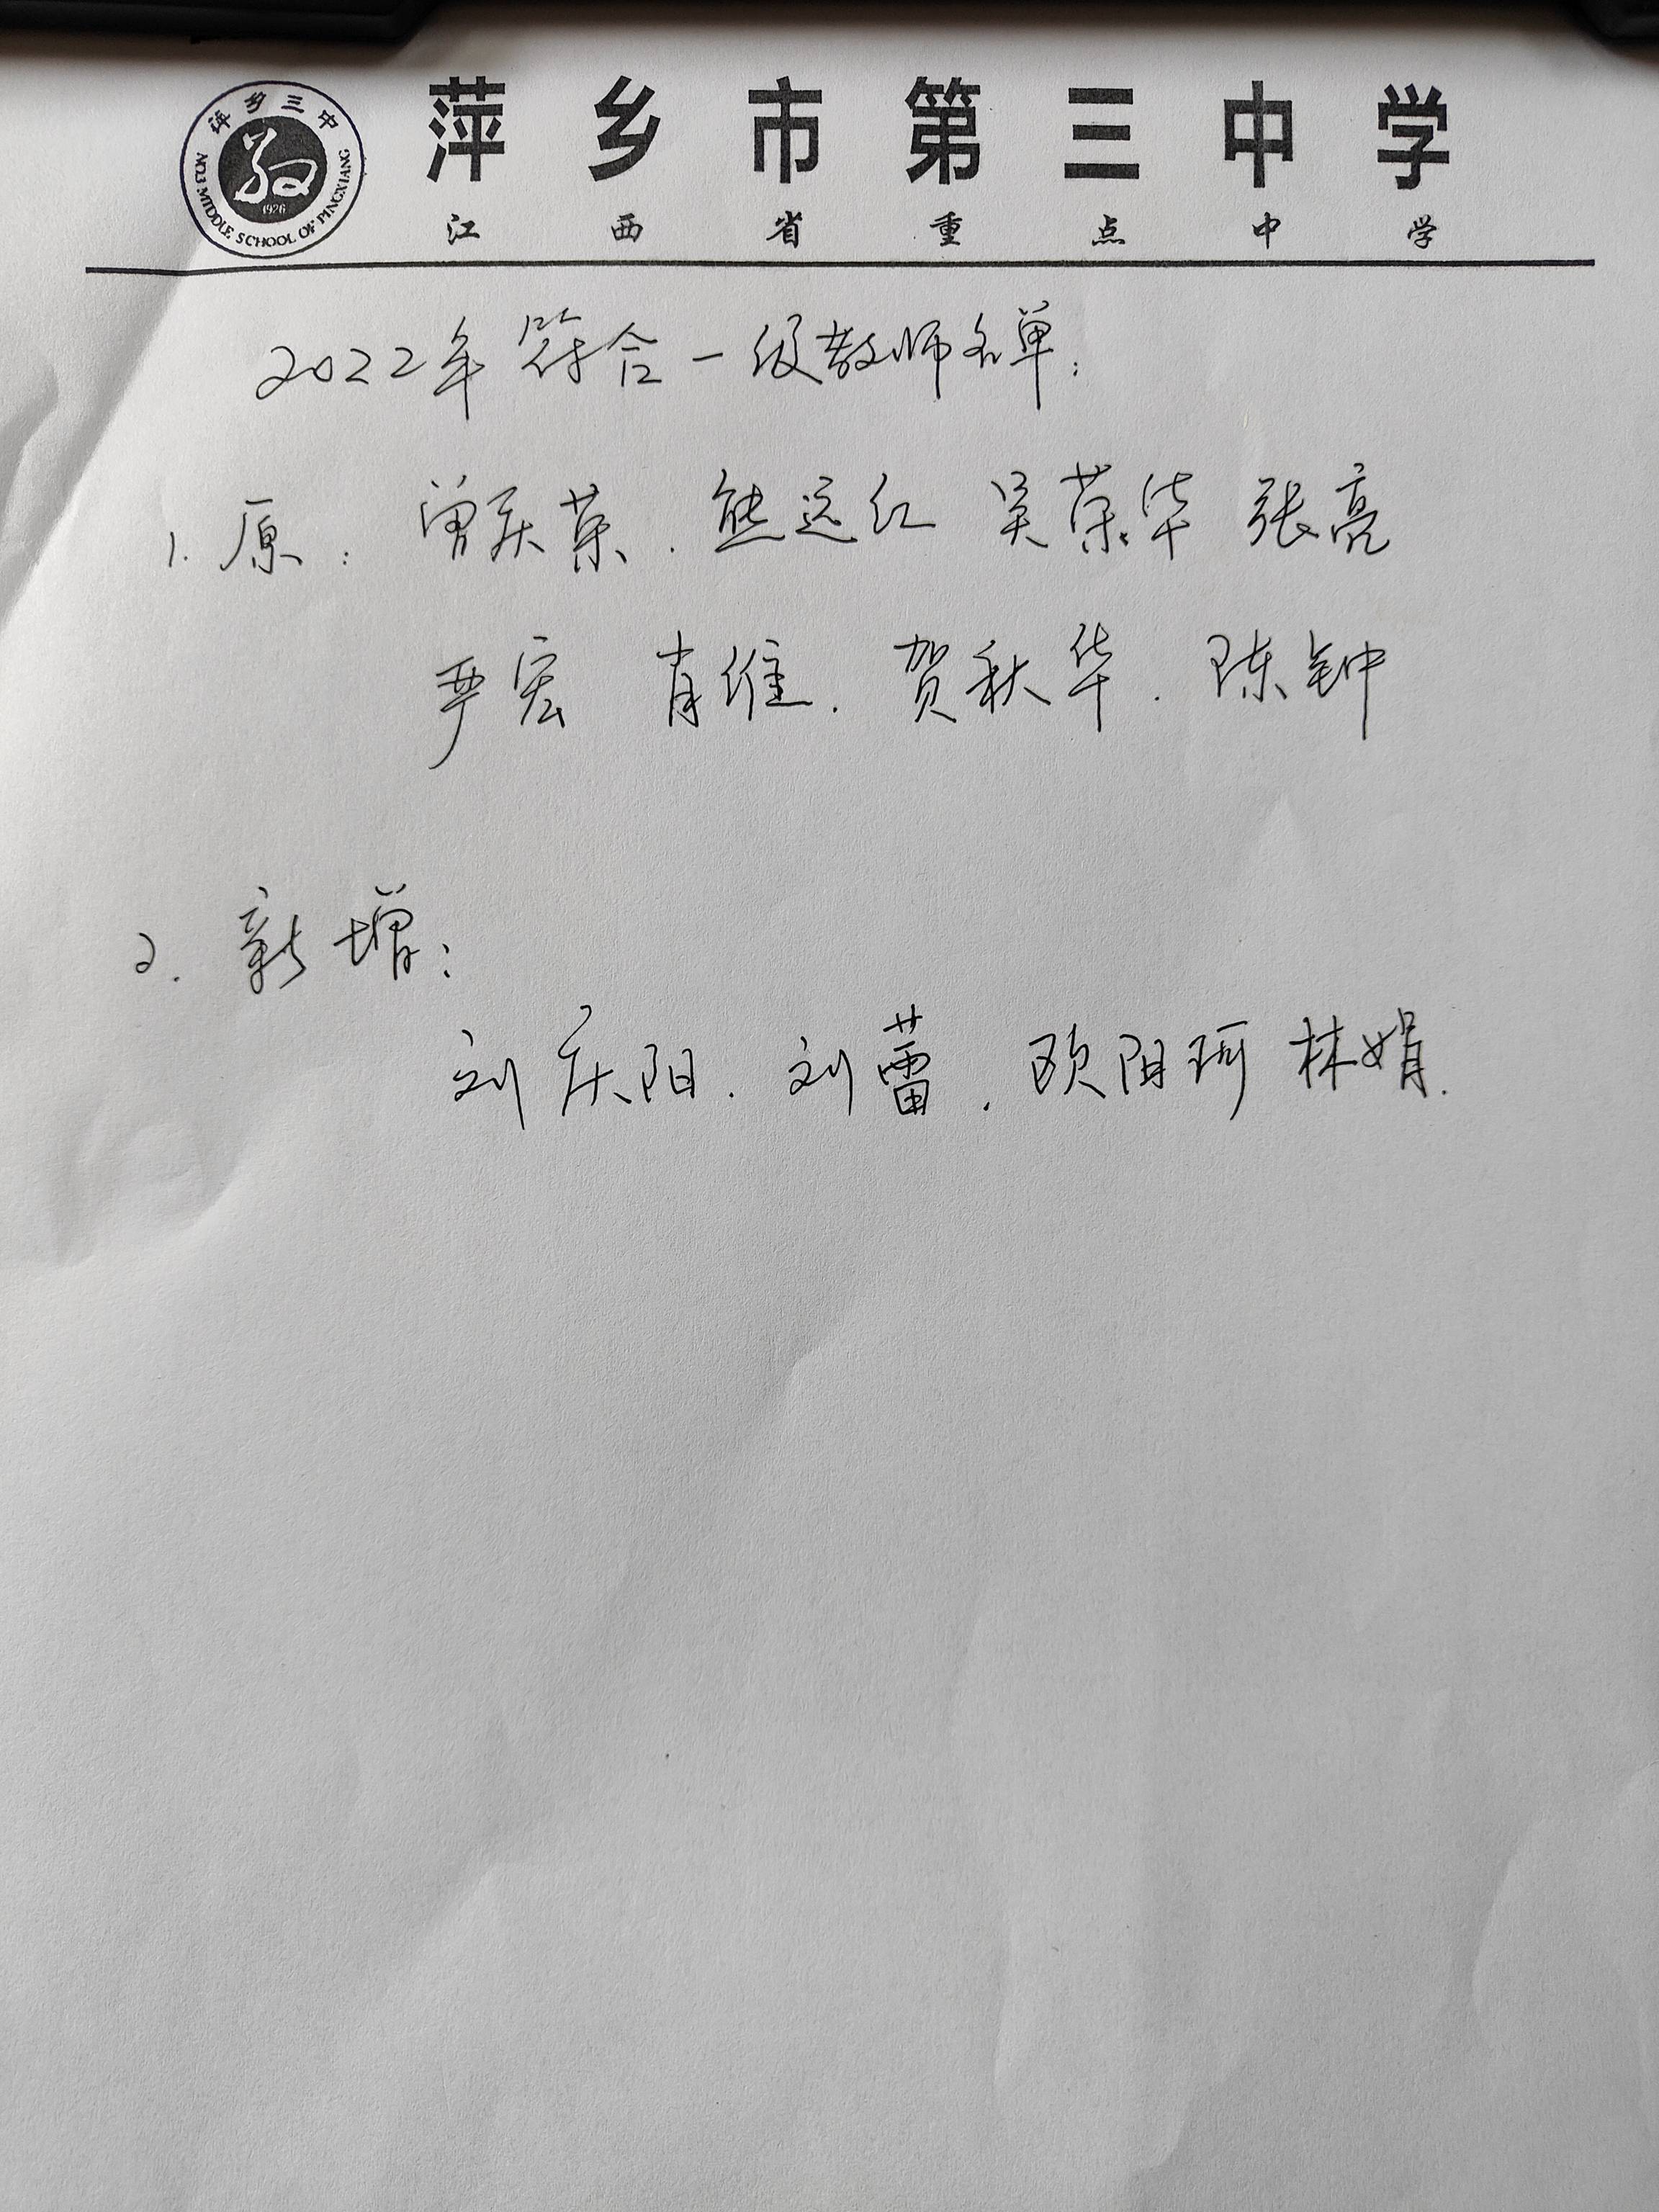 萍乡三中
1926
NO.3 MIDDLE SCHOOL OF PINGXIANG
萍乡市第三中学
江西省重点中学
2022年符合一级教师名单:
1. 原: 曾庆荣. 熊远红 吴荣华 张亮
严宏 肖维. 贺秋华. 陈钟
2. 新增:
刘庆阳. 刘蕾. 欧阳珂 林娟.